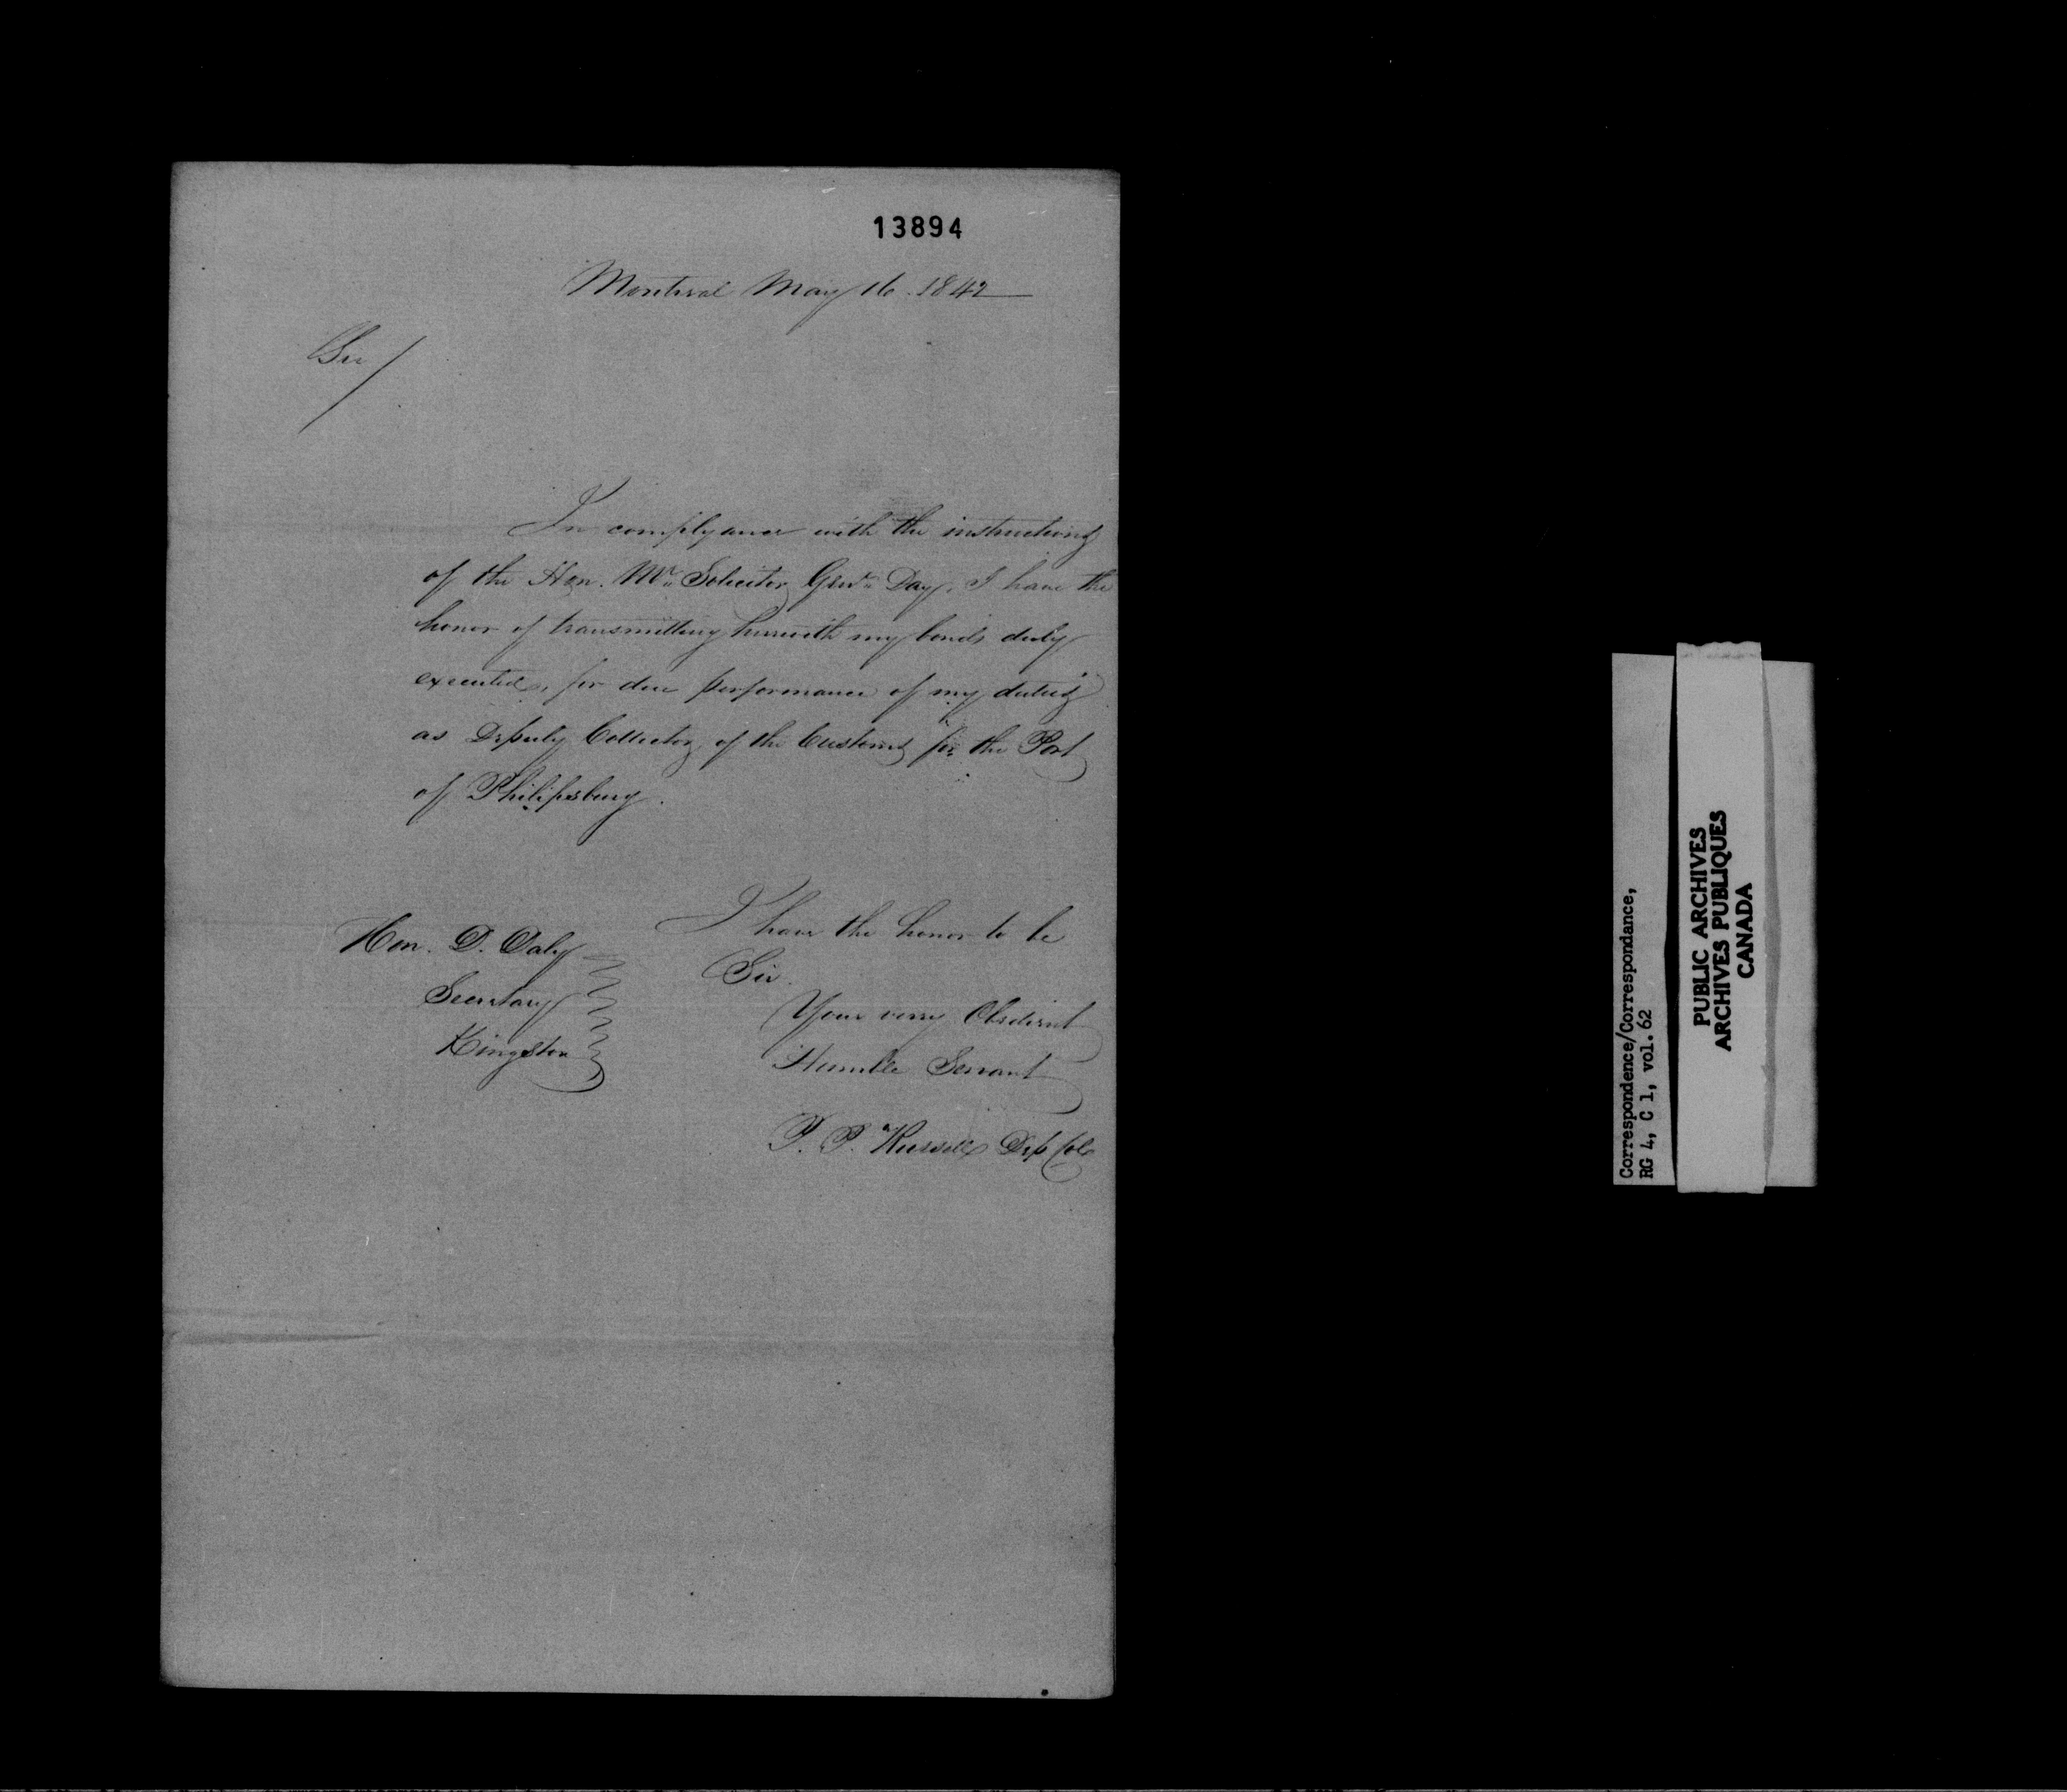 13894
Montreal May 16. 1842
Sir/
In complyance with the instructions
of the Hon. Mr. Solicitor Genl. Day, I have the
honor of transmitting herewith my bonds duly
executed, for due performance of my duties
as Deputy Collector of the Customs for the Port
of Philipsburg.
I have the honor to be
Sir.
Your verry Obedient
Humble Servant
P. P. Russell Dep Col
Hon. D. Daly
Secretary
Kingston
Correspondence/Correspondance,
RG 4, C 1, vol. 62
PUBLIC ARCHIVES
ARCHIVES PUBLIQUES
CANADA